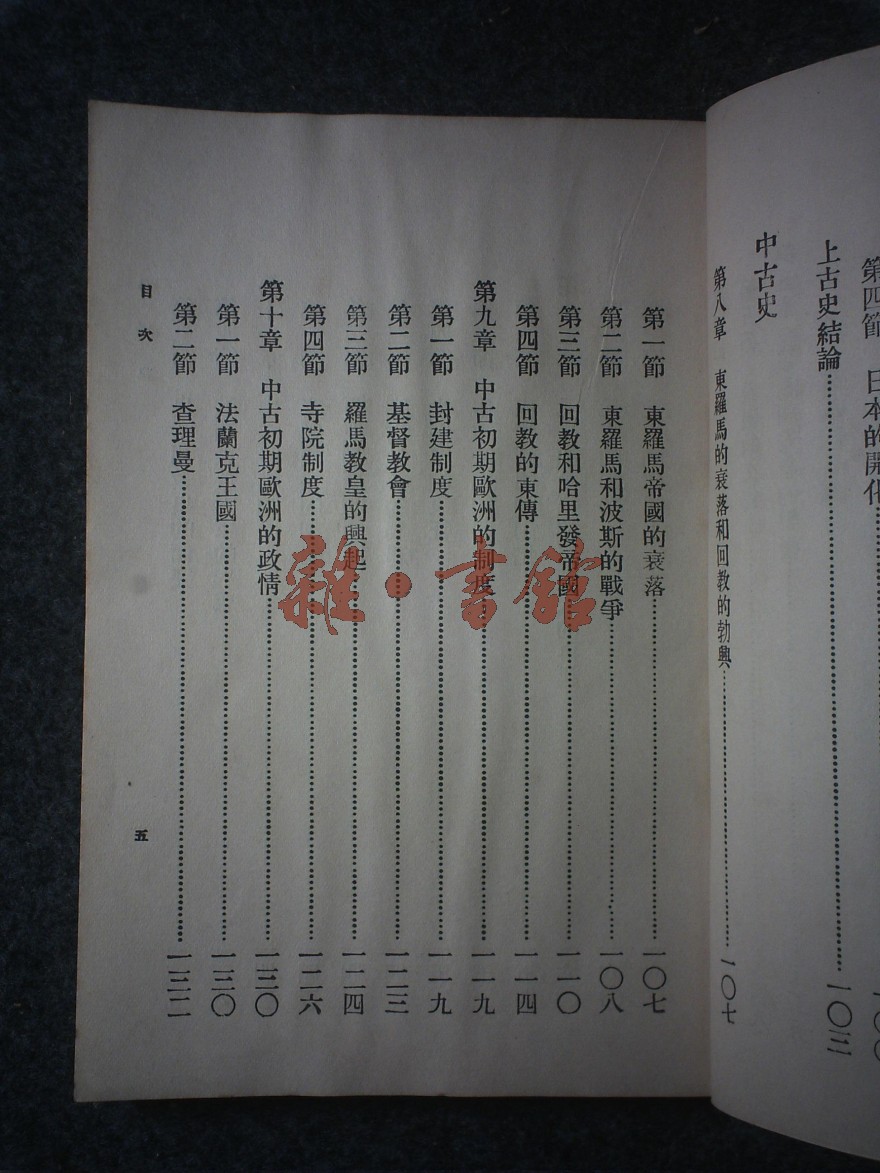 第四節　日本的開化
上古史結論…………一〇三
中古史
第八章　東羅馬的衰落和回教的勃興…………一〇七
第一節　東羅馬帝國的衰落…………一〇七
第二節　東羅馬和波斯的戰爭…………一〇八
第三節　回教和哈里發帝國…………一一〇
第四節　回教的東傳…………一一四
第九章　中古初期歐洲的制度…………一一九
第一節　封建制度…………一一九
第二節　基督教會…………一二三
第三節　羅馬教皇的興起…………一二四
第四節　寺院制度…………一二六
第十章　中古初期歐洲的政情…………一三〇
第一節　法蘭克王國…………一三〇
第二節　查理曼…………一三二
目次
五
雜·書館